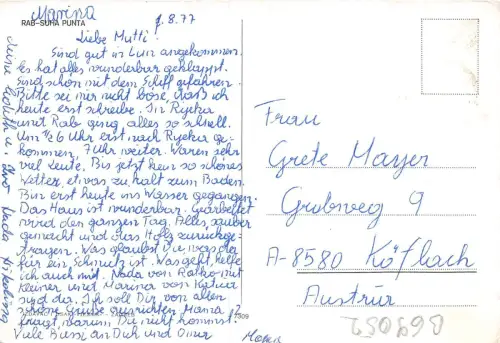 Marina
1.8.77
RAB-SUHA PUNTA
Liebe Mutti!
Sind gut in Lun angekommen.
Es hat alles wunderbar geklappt.
Sind schon mit dem Schiff gefahren.
Bitte sei mir nicht böse, daß ich
heute erst schreibe. In Rijeka
und Rab ging alles so schnell.
Um 1/2 6 Uhr erst nach Rijeka ge-
kommen, 7 Uhr weiter. Waren sehr
viel Leute. Bis jetzt kein so schönes
Wetter, etwas zu kalt zum Baden.
Bin erst heute ins Wasser gegangen.
Das Haus ist wunderbar. Gearbeitet
wird den ganzen Tag. Alles sauber
gemacht und das Holz
tragen. Was glaubst Du, was da
für ein Schmutz ist. Was geht, helfe
ich auch mit. Nada von Ratko mit
Kleiner und Marina von
sind da. Ich soll Dir von allen
schöne Grüße ausrichten. Mama
fragt, warum Du nicht kommst?
Viele Bussi an Dich und Oma
Deine Edith u.
Nada
7309
Frau
Grete Mayer
Grubweg 9
A-8580 Köflach
Austria
B69052